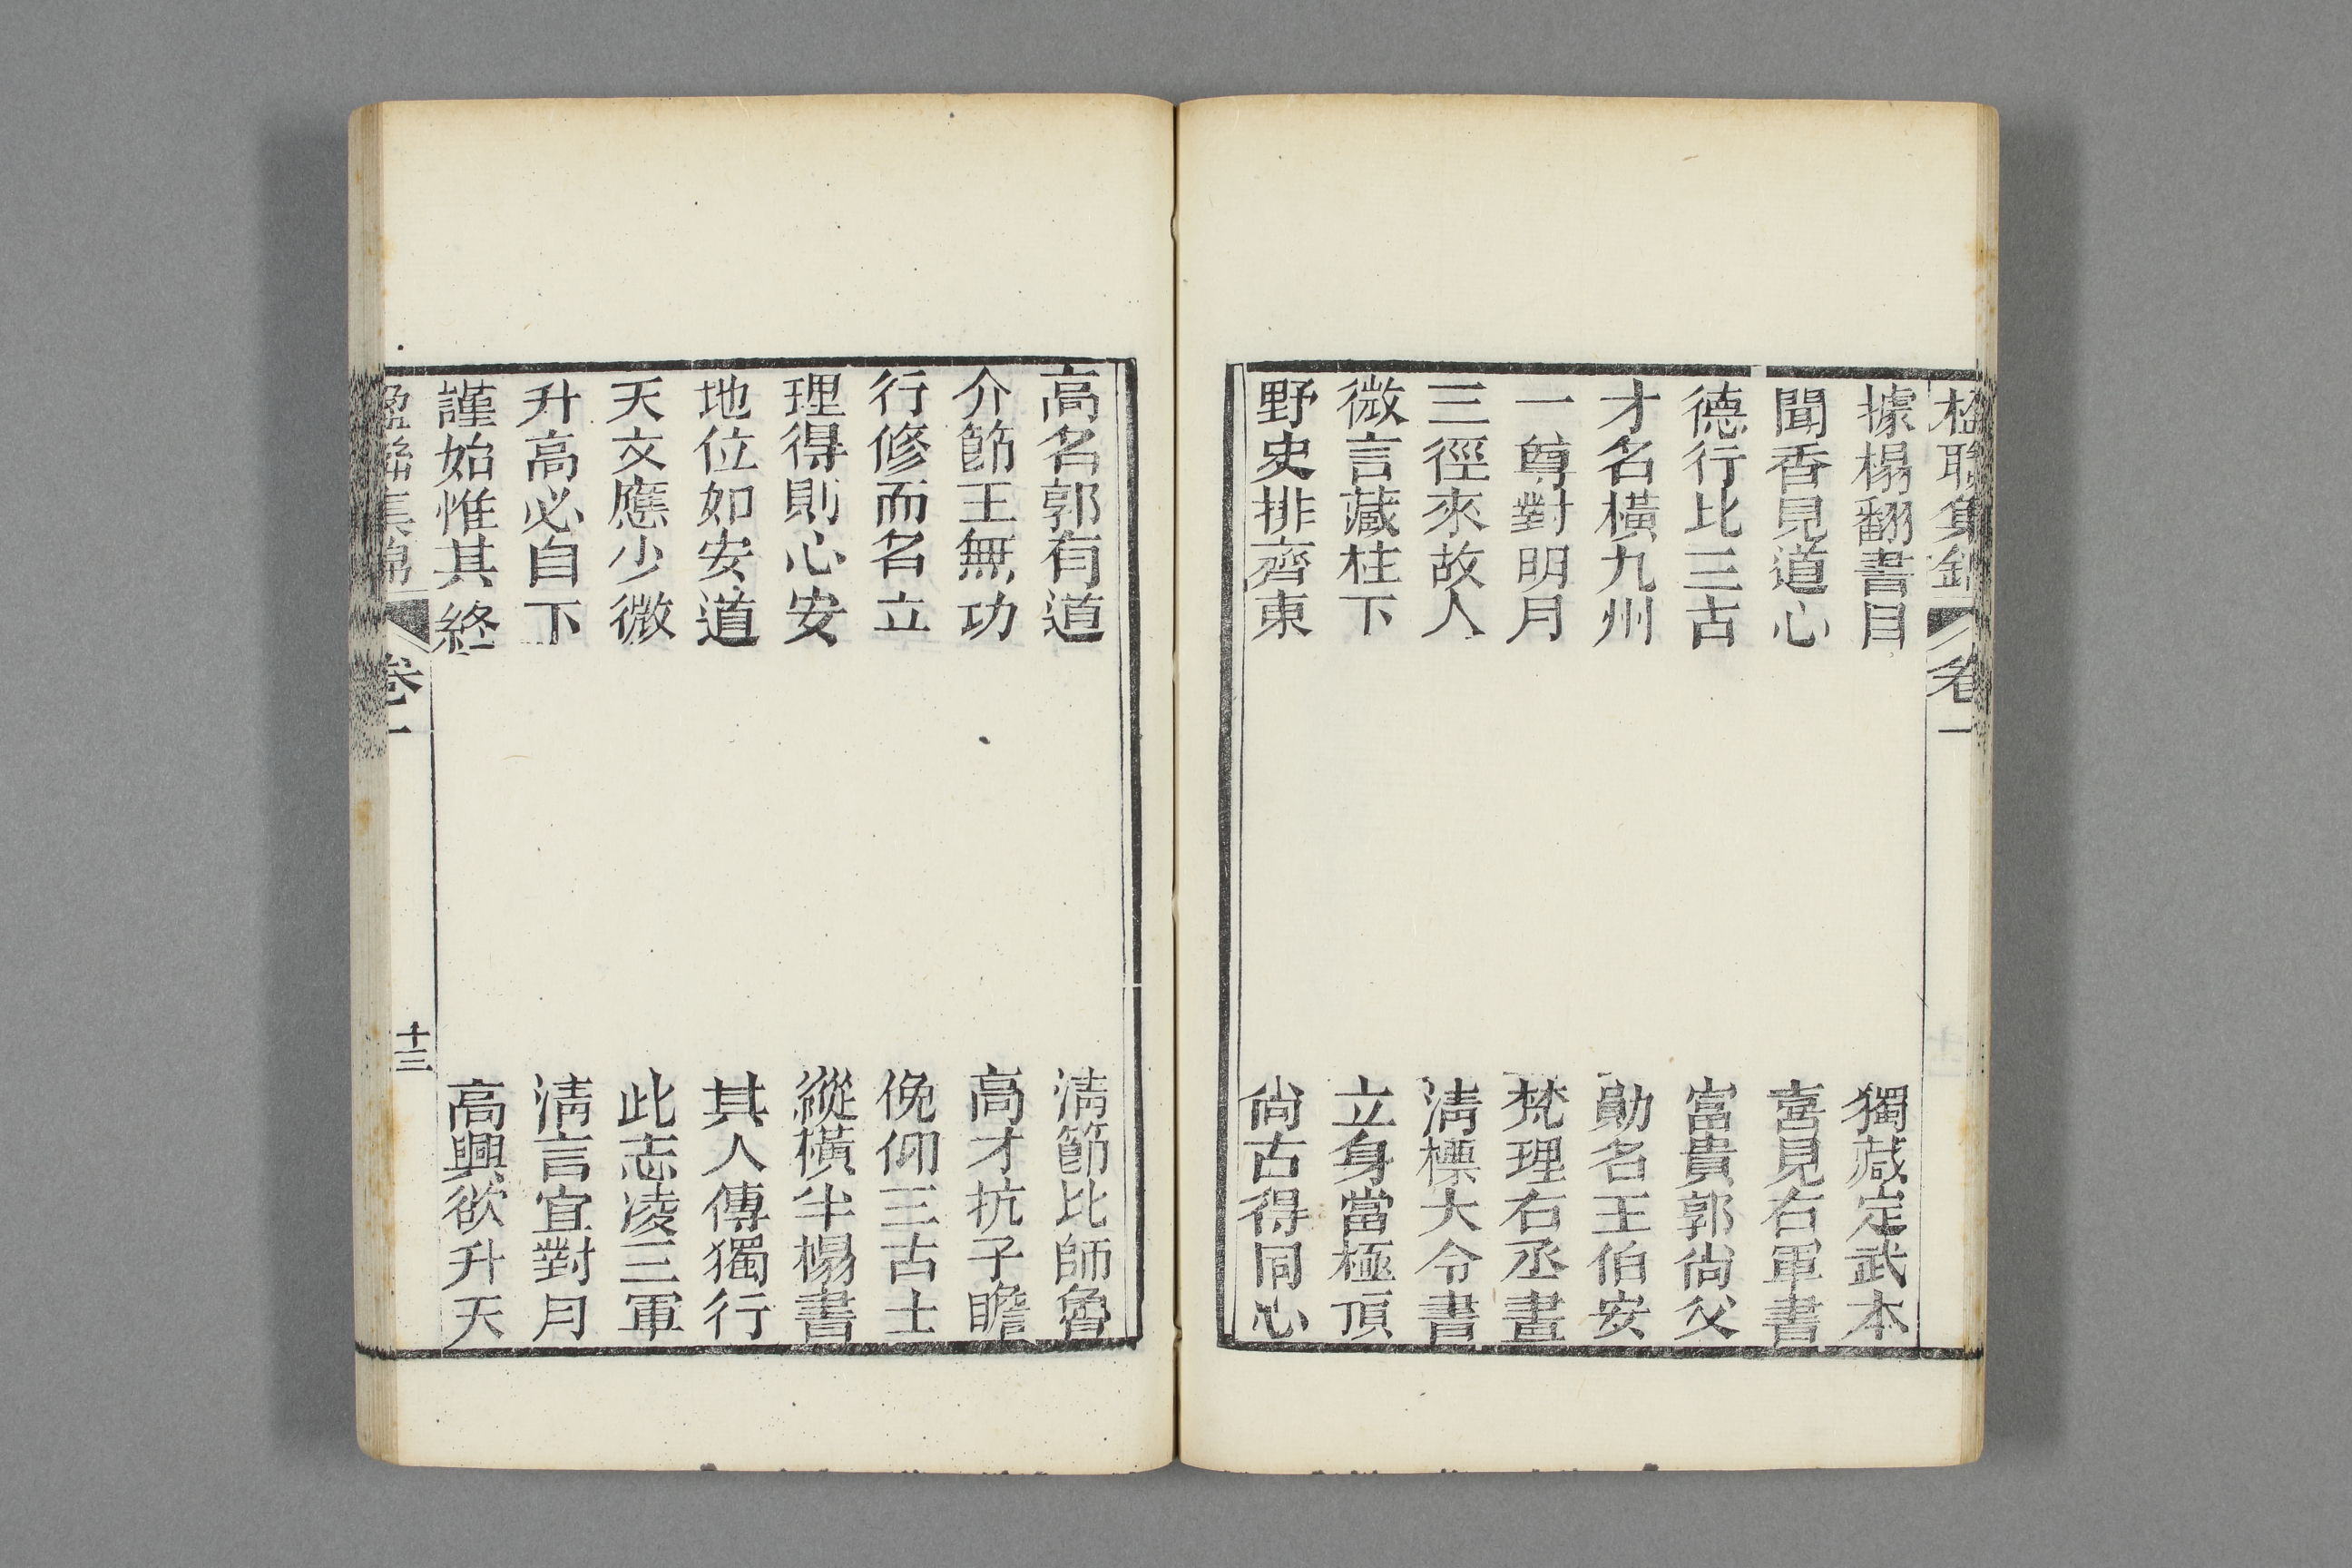 楹聯集錦
卷一
據榻翻書目
獨藏定武本
聞香見道心
喜見右軍書
德行比三古
富貴郭尙父
才名橫九州
勛名王伯安
一尊對明月
梵理右丞畫
三徑來故人
淸標大令書
微言藏柱下
立身當極頂
野史排齊東
尙古得同心
高名郭有道
淸節比師魯
介節王無功
高才抗子瞻
行修而名立
俛仰三古士
理得則心安
縱橫半榻書
地位如安道
其人傳獨行
天文應少微
此志凌三軍
升高必自下
淸言宜對月
謹始惟其終
高興欲升天
楹聯集錦
卷一
十三